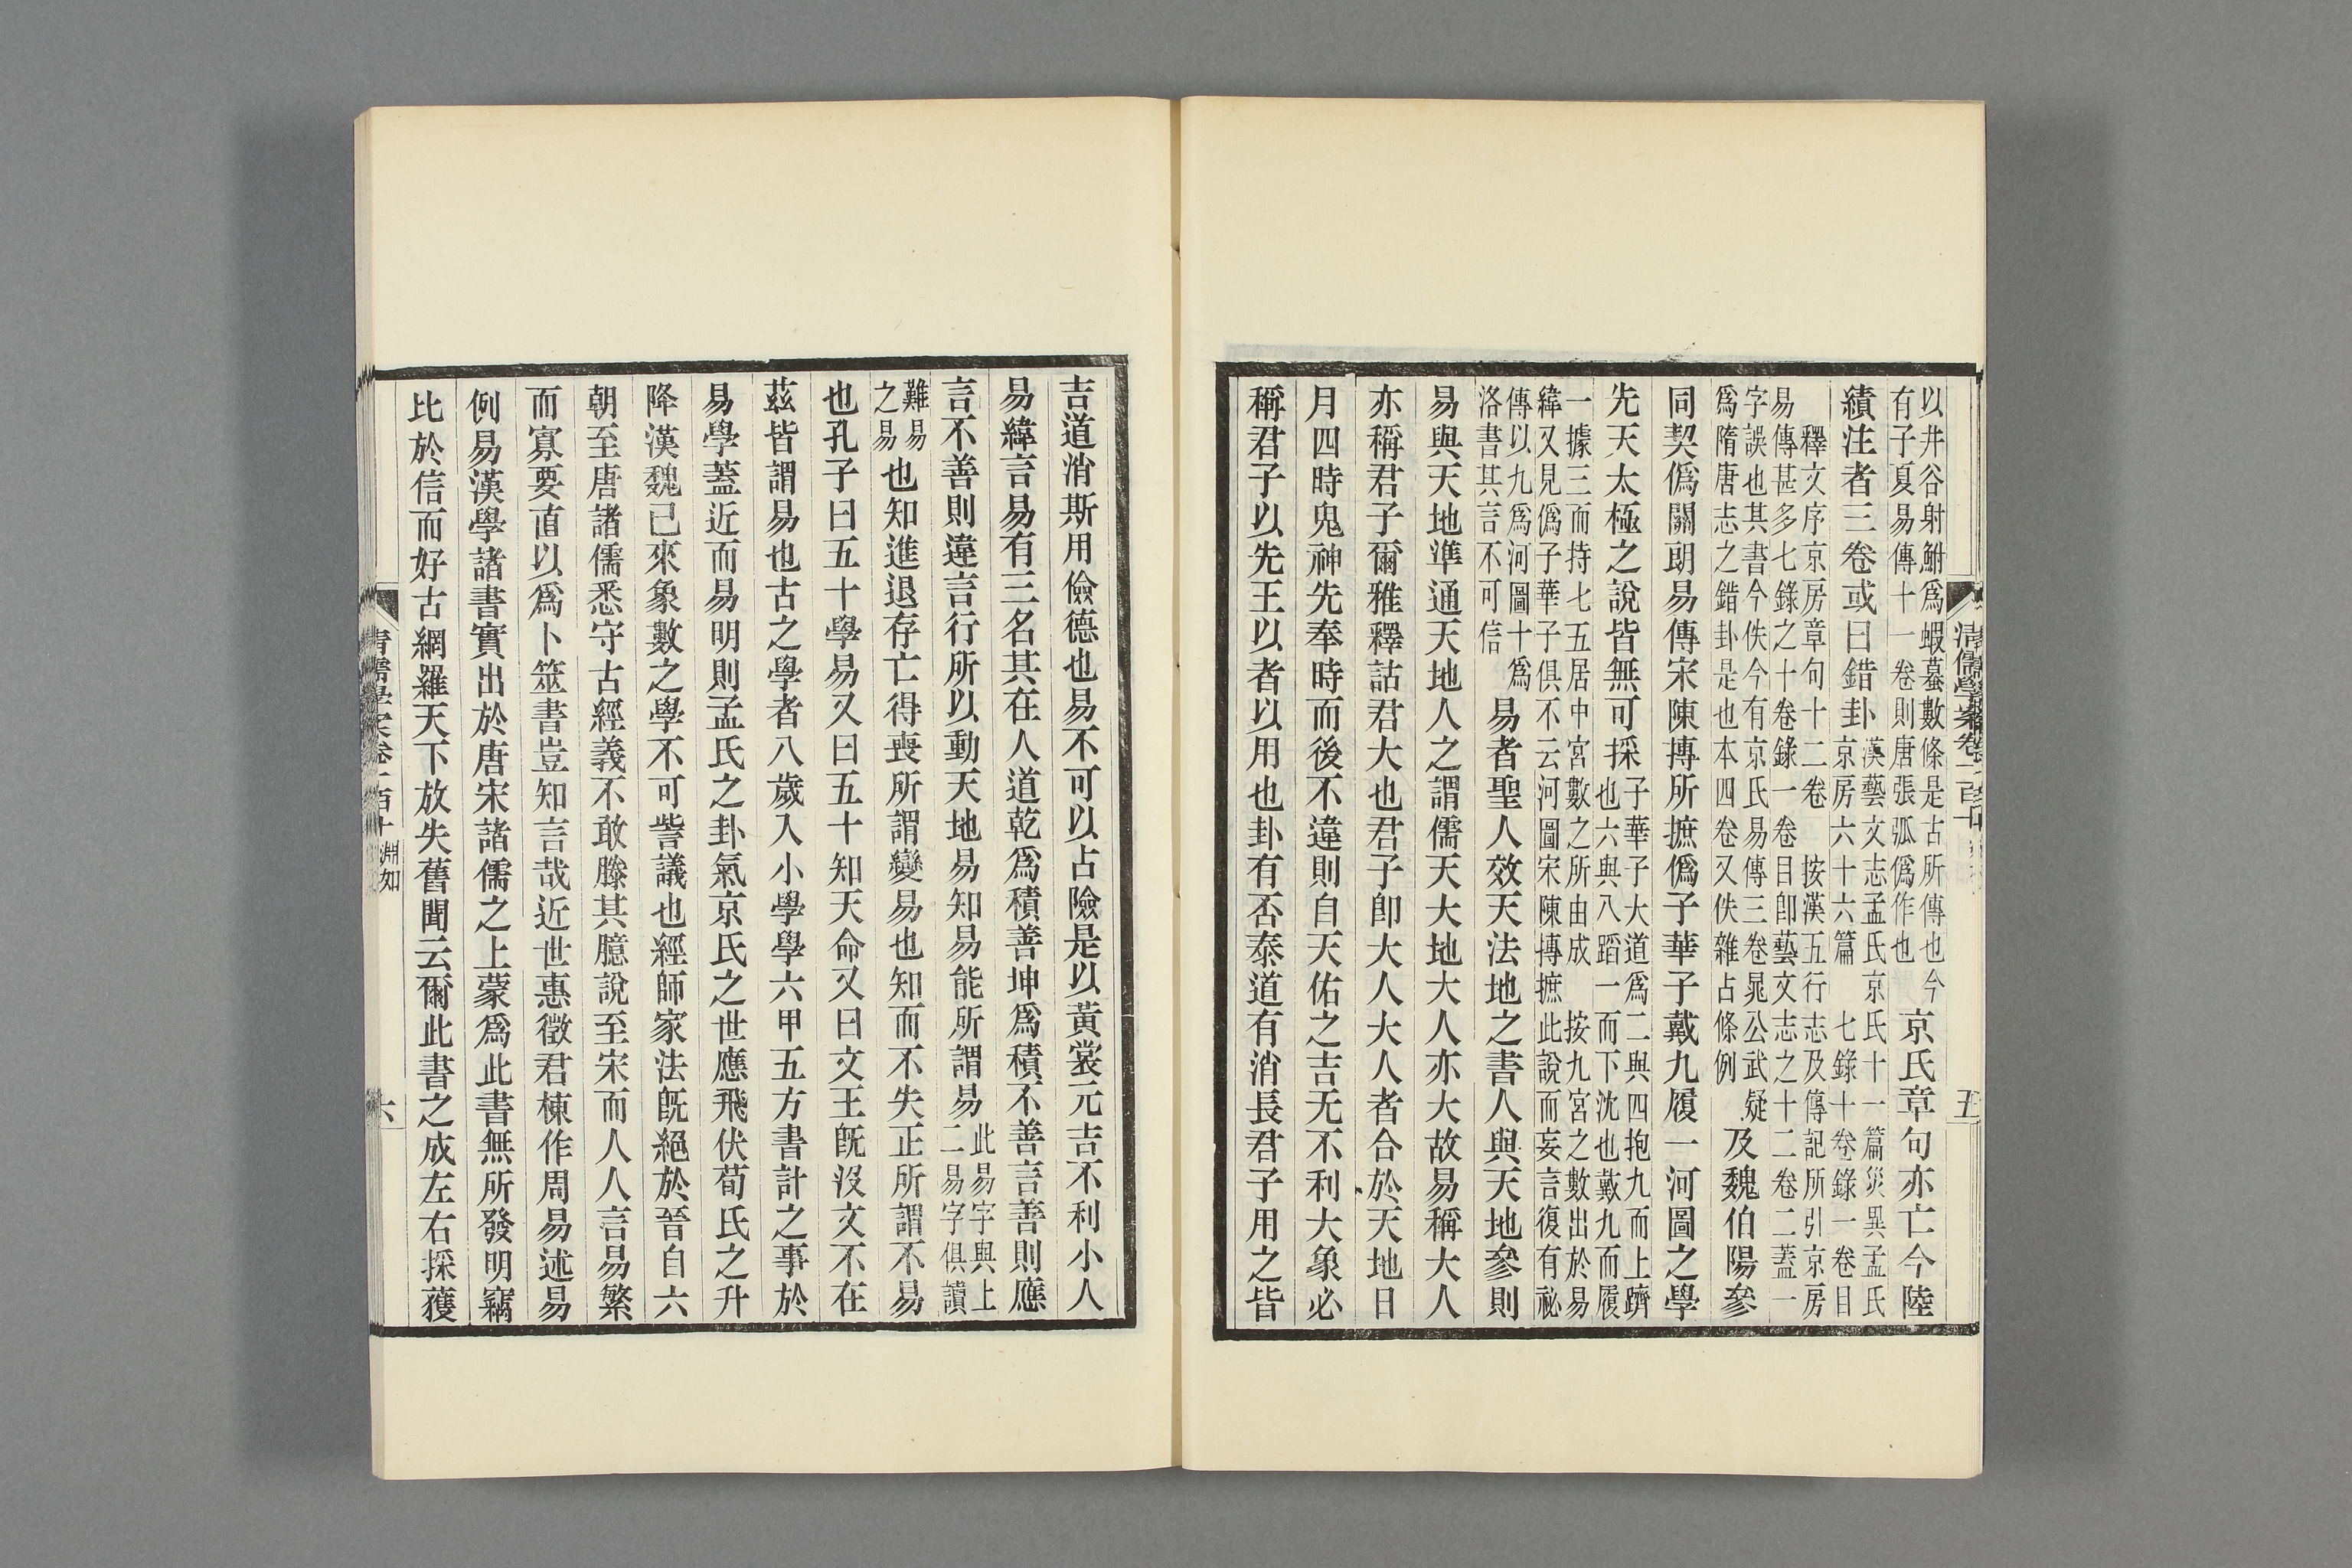 以井谷射鮒爲蝦蟇數條是古所傳也今
有子夏易傳十一卷則唐張弧僞作也
京氏章句亦亡今陸
績注者三卷或曰錯卦
漢藝文志孟氏京氏十一篇災異孟氏
京房六十六篇 七錄十卷錄一卷目
釋文序京房章句十二卷 按漢五行志及傳記所引京房
易傳甚多七錄之十卷錄一卷目卽藝文志之十二卷二蓋一
字誤也其書今佚今有京氏易傳三卷晁公武疑
爲隋唐志之錯卦是也本四卷又佚雜占條例
及魏伯陽參
同契僞關朗易傳宋陳摶所摭僞子華子戴九履一河圖之學
先天太極之說皆無可採
子華子大道爲二與四抱九而上躋
也六與八蹈一而下沈也戴九而履
一據三而持七五居中宮數之所由成 按九宮之數出於易
緯又見僞子華子俱不云河圖宋陳摶摭此說而妄言復有祕
傳以九爲河圖十爲
洛書其言不可信
易者聖人效天法地之書人與天地參則
易與天地準通天地人之謂儒天大地大人亦大故易稱大人
亦稱君子爾雅釋詁君大也君子卽大人大人者合於天地日
月四時鬼神先奉時而後不違則自天佑之吉无不利大象必
稱君子以先王以者以用也卦有否泰道有消長君子用之皆
清儒學案卷一百十
五
吉道消斯用儉德也易不可以占險是以黃裳元吉不利小人
易緯言易有三名其在人道乾爲積善坤爲積不善言善則應
言不善則違言行所以動天地易知易能所謂易
此易字與上
二易字俱讀
難易
之易
也知進退存亡得喪所謂變易也知而不失正所謂不易
也孔子曰五十學易又曰五十知天命又曰文王旣沒文不在
茲皆謂易也古之學者八歲入小學學六甲五方書計之事於
易學蓋近而易明則孟氏之卦氣京氏之世應飛伏荀氏之升
降漢魏已來象數之學不可訾議也經師家法旣絕於晉自六
朝至唐諸儒悉守古經義不敢滕其臆說至宋而人人言易繁
而寡要直以爲卜筮書豈知言哉近世惠徵君棟作周易述易
例易漢學諸書實出於唐宋諸儒之上蒙爲此書無所發明竊
比於信而好古網羅天下放失舊聞云爾此書之成左右採獲
清儒學案卷一百十 淵如
六